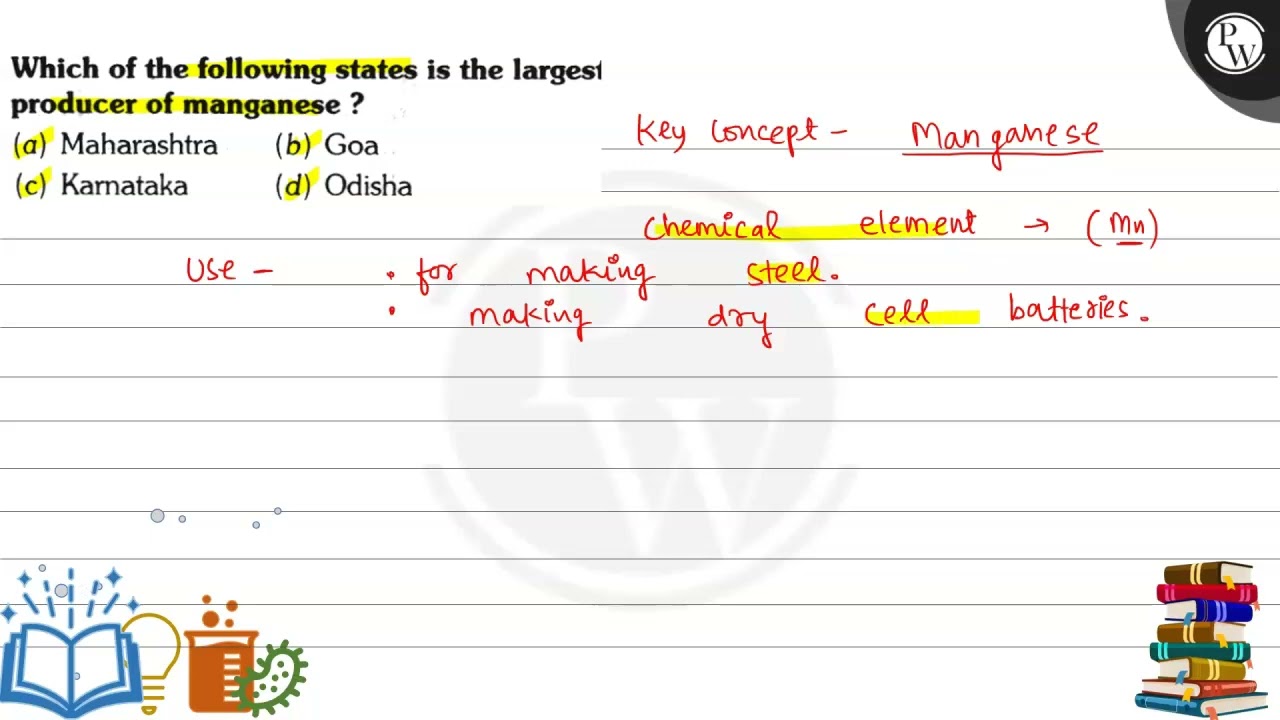 Which of the following states is the largest
producer of manganese ?
(a) Maharashtra (b) Goa
(c) Karnataka (d) Odisha
Key concept - Manganese
Chemical element → (Mn)
Use - • for making steel.
• making dry cell batteries.
PW
PW